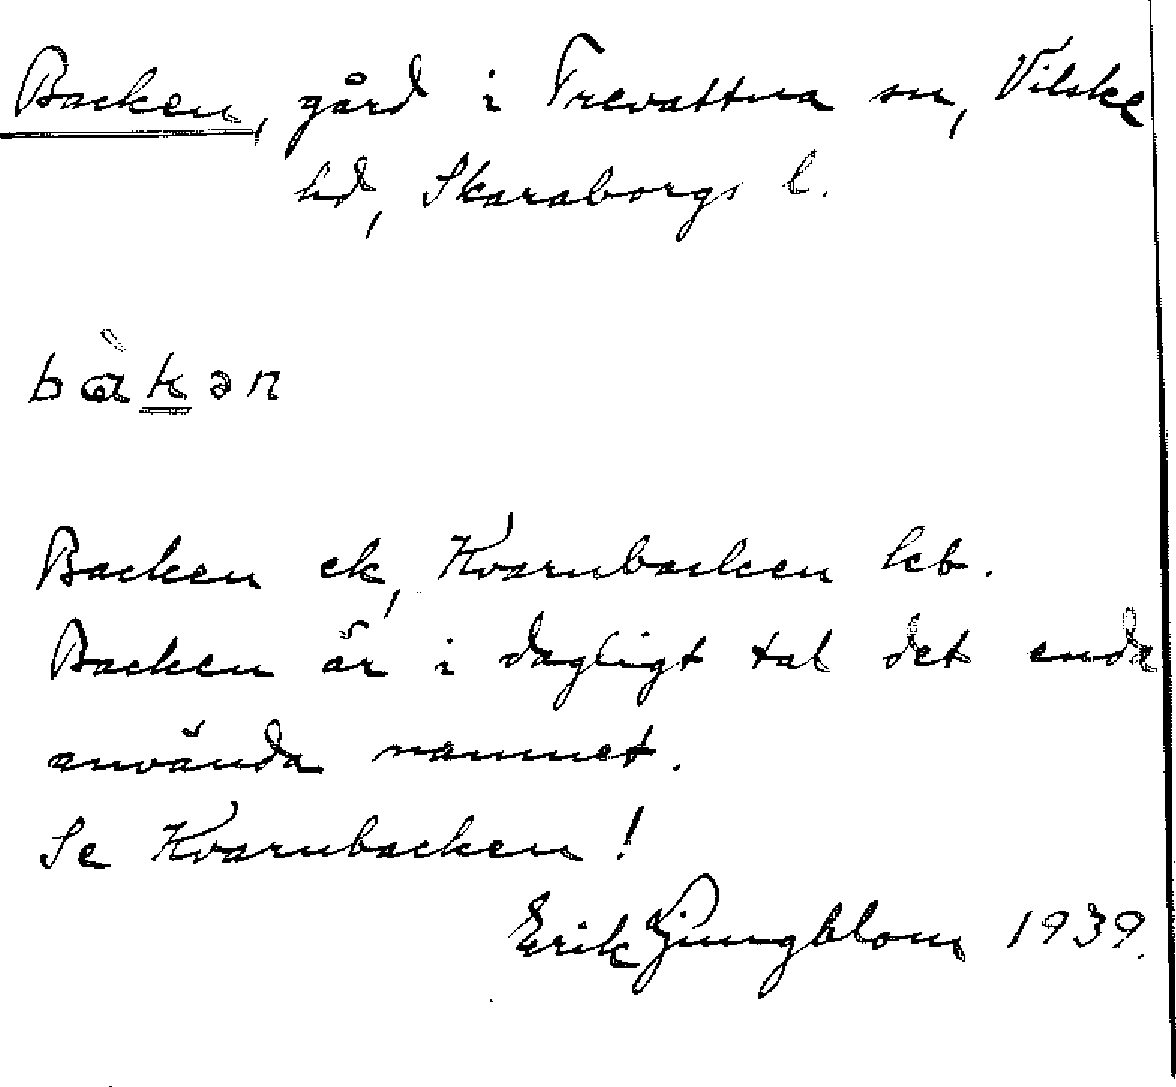 Backen, gård i Trevattna sn, Vilske
hd, Skaraborgs l.
bàkən
Backen ek, Kvarnbacken jb.
Backen är i dagligt tal det enda
använda namnet.
Se Kvarnbacken!
Erik Ljungblom 1939.